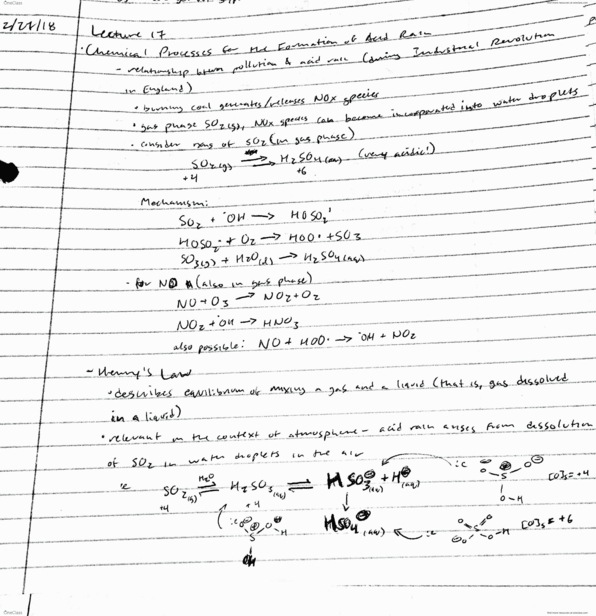 2/27/18
Lecture 17
• Chemical Processes for the Formation of Acid Rain
- relationship btwn pollution & acid rain (during Industrial Revolution
in England)
• burning coal generates/releases NOx species
• gas phase SO2(g), NOx species can become incorporated into water droplets
• consider rxns of SO2 (in gas phase)
SO2(g) ⟶ H2SO4(aq) (very acidic!)
+4 +6
Mechanism:
SO2 + ·OH → HOSO2·
HOSO2· + O2 → HOO· + SO3
SO3(g) + H2O(l) → H2SO4(aq)
- for NO (also in gas phase)
NO + O3 → NO2 + O2
NO2 + ·OH → HNO3
also possible: NO + HOO· → ·OH + NO2
- Henry's Law
• describes equilibrium of mixing a gas and a liquid (that is, gas dissolved
in a liquid)
• relevant in the context of atmosphere - acid rain arises from dissolution
of SO2 in water droplets in the air
SO2(g) ⇌ H2O H2SO3(aq) ⇌ HSO3⊖(aq) + H⊕(aq)
+4 +4
[O]s = +4
HSO4⊖(aq)
[O]s = +6
OH